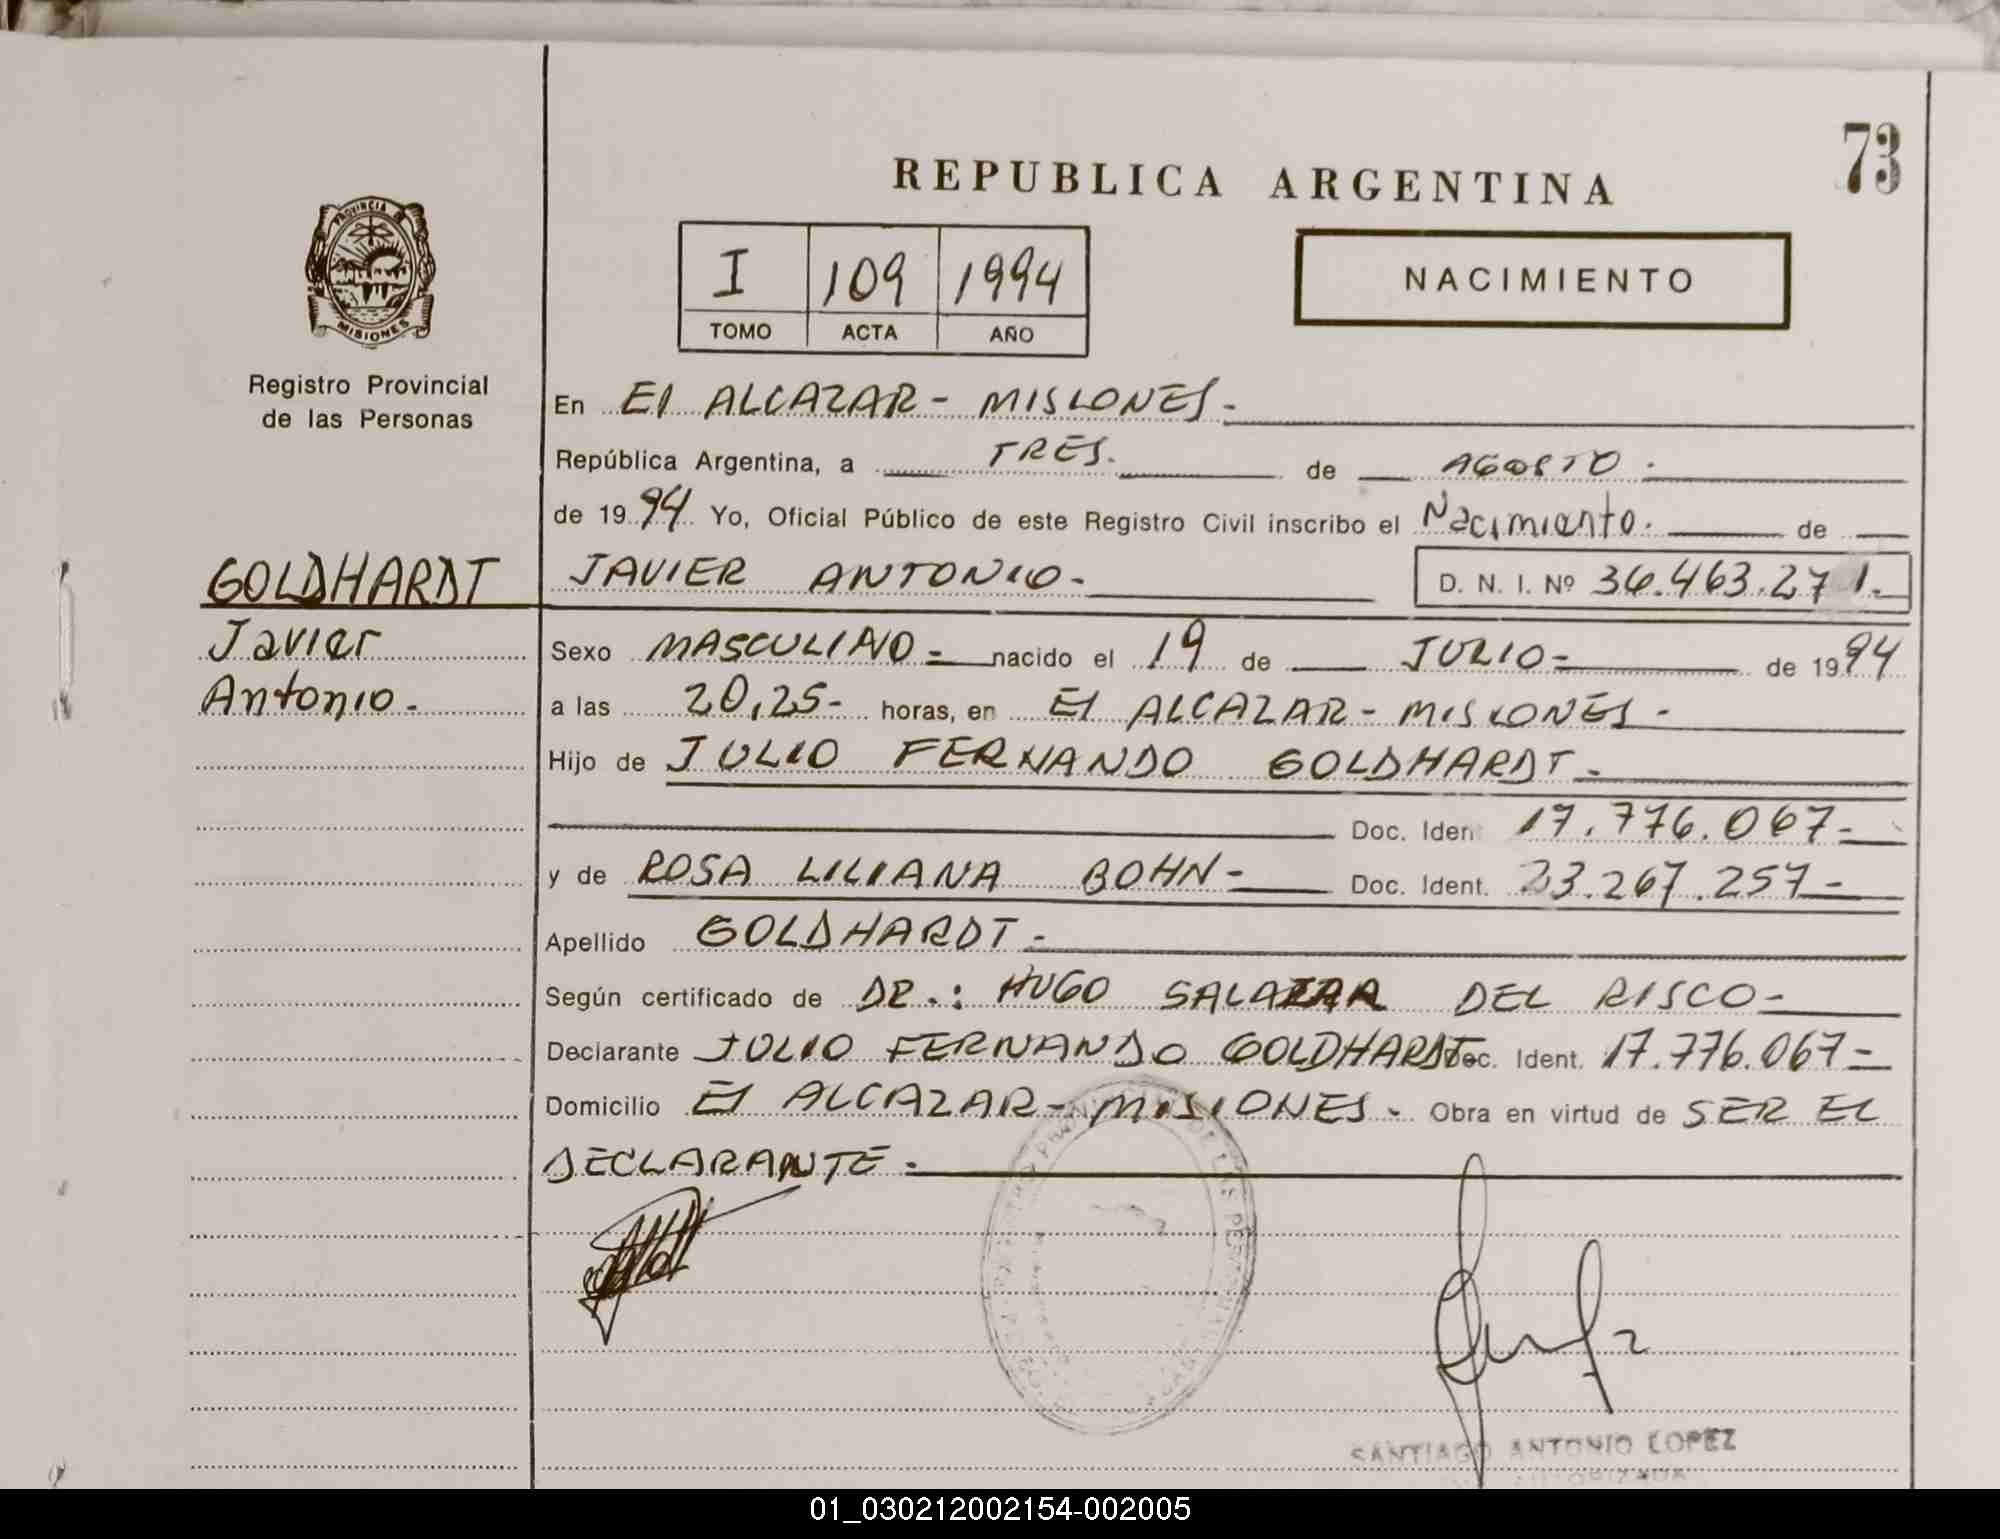 73
REPUBLICA ARGENTINA
PROVINCIA DE
MISIONES
Registro Provincial
de las Personas
I 109 1994
TOMO ACTA AÑO
NACIMIENTO
En El ALCAZAR - MISIONES -
República Argentina, a TRES. de AGOSTO.
de 1994 Yo, Oficial Público de este Registro Civil inscribo el Nacimiento. de
GOLDHARDT JAVIER ANTONIO - D. N. I. Nº 36.463.271.-
Javier
Antonio.
Sexo MASCULINO = nacido el 19 de JULIO = de 1994
a las 20,25- horas, en El ALCAZAR - MISIONES -
Hijo de JULIO FERNANDO GOLDHARDT -
Doc. Iden 17.776.067 -
y de ROSA LILIANA BOHN - Doc. Ident. 23.267.257 -
Apellido GOLDHARDT -
Según certificado de DR.: HUGO SALAZAR DEL RISCO -
Declarante JULIO FERNANDO GOLDHARDT Doc. Ident. 17.776.067 =
Domicilio El ALCAZAR - MISIONES - Obra en virtud de SER EL
DECLARANTE -
SANTIAGO ANTONIO LOPEZ
01_030212002154-002005